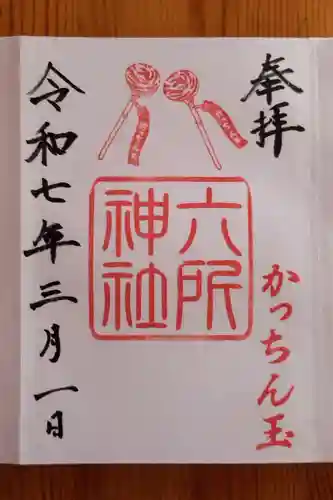 奉拝
かっちん玉
六所
神社
令和七年三月一日